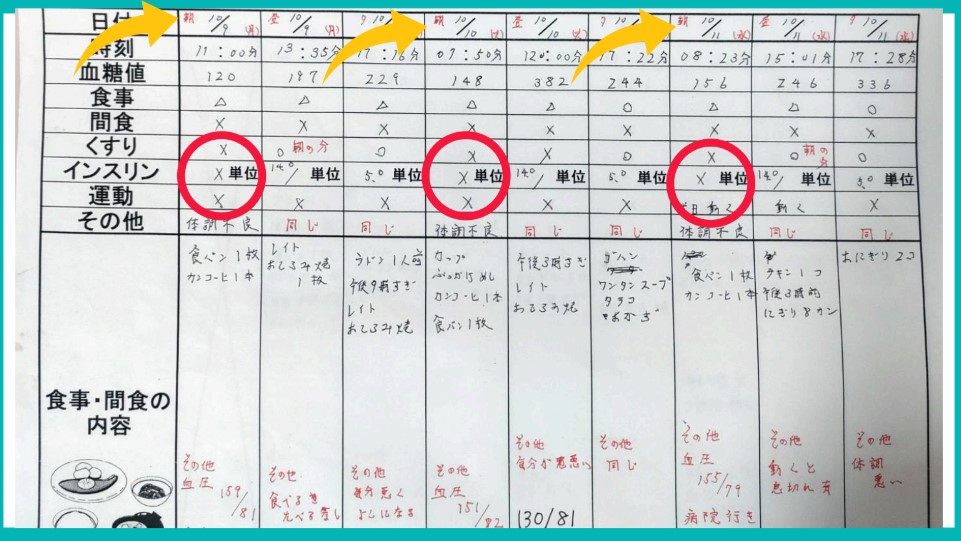 日付 朝 10/9 (月) 昼 10/9 (月) 夕 10/ 朝 10/10 (火) 昼 10/10 (火) 夕 10/ 朝 10/11 (水) 昼 10/11 (水) 夕 10/11 (水)
時刻 11:00分 13:35分 17:16分 07:50分 12:00分 17:22分 08:23分 15:01分 17:28分
血糖値 120 197 229 148 382 244 156 246 336
食事 △ △ △ △ △ ○ △ △ ○
間食 × × × × × × × × ×
くすり × ○ 朝の分 ○ × × ○ × ○ 朝の分 ○
インスリン ×単位 140/単位 5.0単位 ×単位 140/単位 5.0単位 ×単位 140/単位 5.0単位
運動 × × × × × × 動く 動く ×
その他 体調不良 同じ 同じ 体調不良 同じ 同じ 体調不良 同じ 同じ
食事・間食の
内容
食パン1枚
カンコーヒ1本
その他
血圧
159/
81
レイト
1枚
その他
食べる
1人前
レイト
その他
カップ
ぶっかけめし
カンコーヒ1本
食パン1枚
その他
血圧
151/
82
午後3時すぎ
レイト
その他
130/81
ワンタンスープ
タラコ
おかず
その他
同じ
食パン1枚
カンコーヒ1本
その他
血圧
155/
79
病院行き
午後3時前
にぎり8カン
その他
動くと
息切れ有
おにぎり2コ
その他
体調
悪い